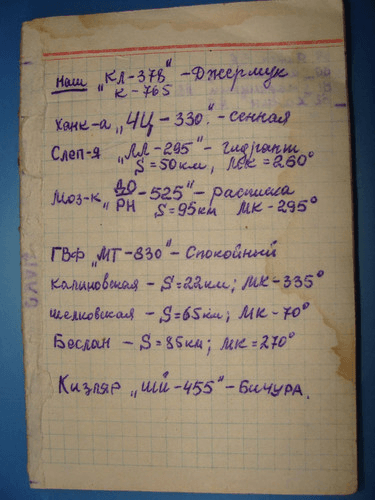 Наш „КЛ-378" - Джермук
К-765
Ханк-а „ЧЦ-330" - сенная
Слеп-я „ЛЛ-295" - гидрант
S=50км, МК=260°
Моз-к „ДО/РН-525" - расписка
S=95км МК-295°
ГВФ „МТ-830" - Спокойный
Калиновская - S=22км; МК-335°
шелковская - S=65км; МК-70°
Беслан - S=85км; МК=270°
Кизляр „ШЙ-455" - БИЧУРА.